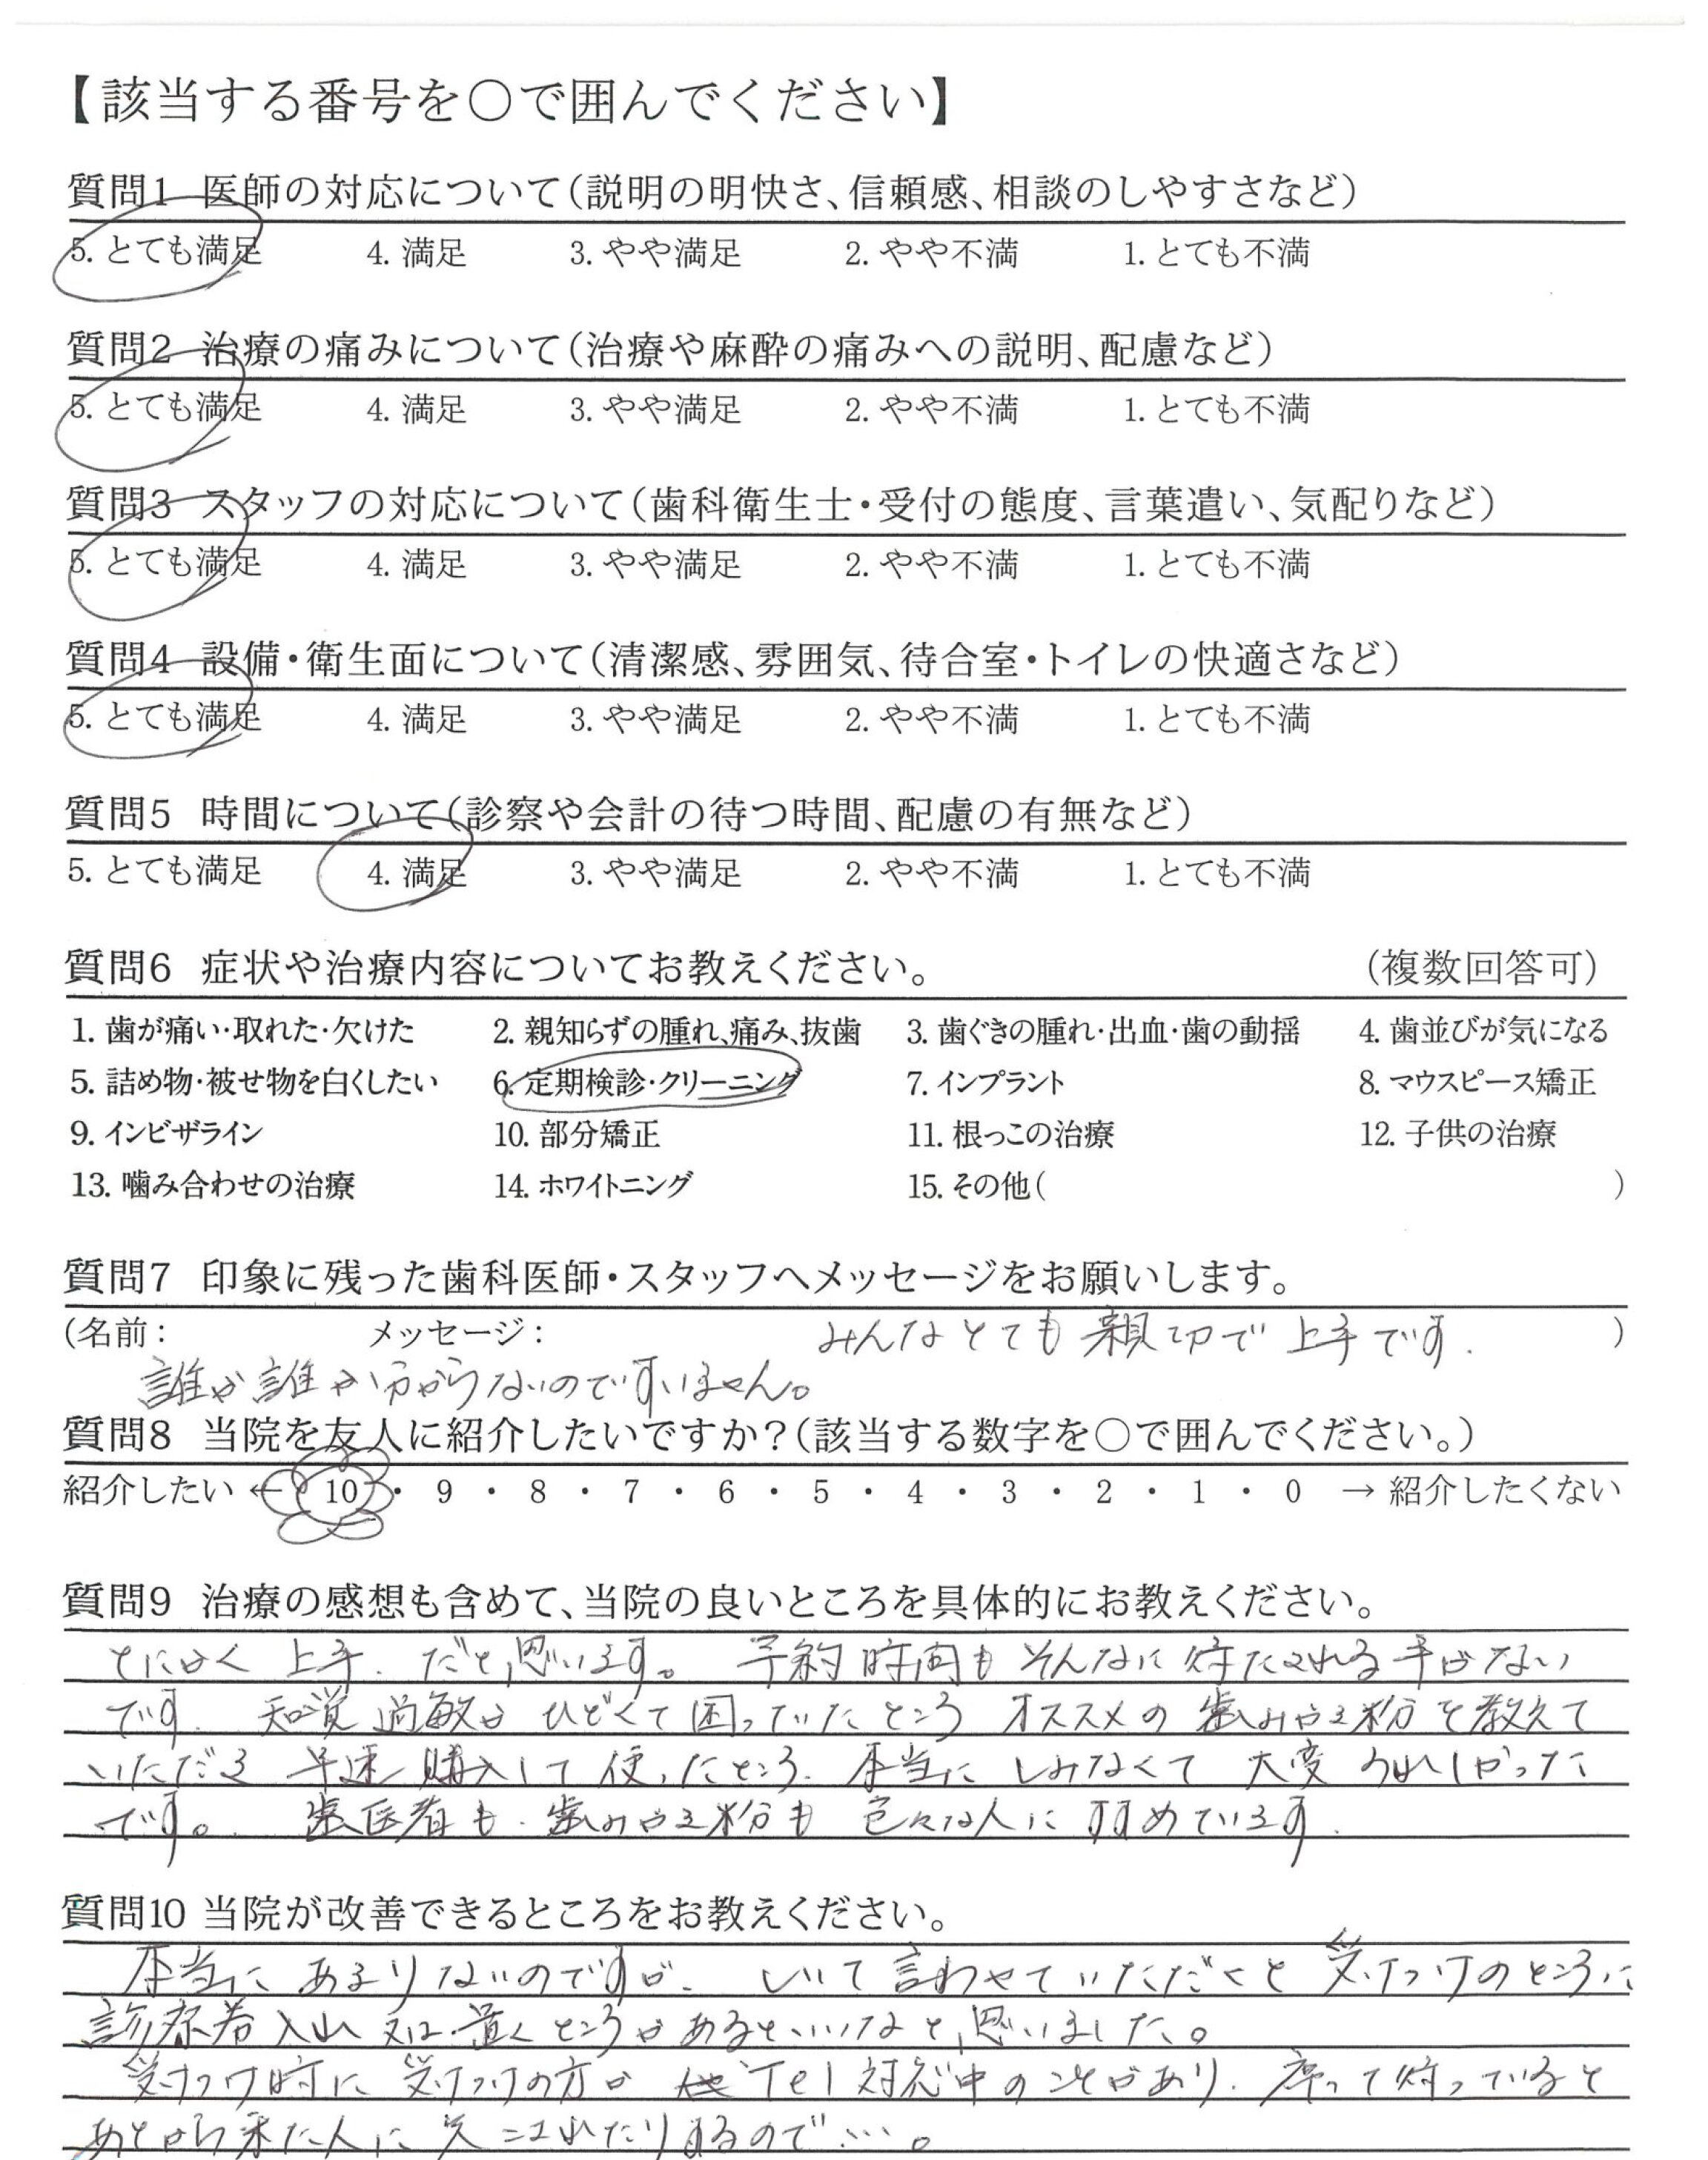 【該当する番号を〇で囲んでください】
質問1 医師の対応について(説明の明快さ、信頼感、相談のしやすさなど)
5. とても満足 4. 満足 3. やや満足 2. やや不満 1. とても不満
質問2 治療の痛みについて(治療や麻酔の痛みへの説明、配慮など)
5. とても満足 4. 満足 3. やや満足 2. やや不満 1. とても不満
質問3 スタッフの対応について(歯科衛生士・受付の態度、言葉遣い、気配りなど)
5. とても満足 4. 満足 3. やや満足 2. やや不満 1. とても不満
質問4 設備・衛生面について(清潔感、雰囲気、待合室・トイレの快適さなど)
5. とても満足 4. 満足 3. やや満足 2. やや不満 1. とても不満
質問5 時間について(診察や会計の待つ時間、配慮の有無など)
5. とても満足 4. 満足 3. やや満足 2. やや不満 1. とても不満
質問6 症状や治療内容についてお教えください。 (複数回答可)
1. 歯が痛い・取れた・欠けた 2. 親知らずの腫れ、痛み、抜歯 3. 歯ぐきの腫れ・出血・歯の動揺 4. 歯並びが気になる
5. 詰め物・被せ物を白くしたい 6. 定期検診・クリーニング 7. インプラント 8. マウスピース矯正
9. インビザライン 10. 部分矯正 11. 根っこの治療 12. 子供の治療
13. 噛み合わせの治療 14. ホワイトニング 15. その他( )
質問7 印象に残った歯科医師・スタッフへメッセージをお願いします。
(名前: メッセージ: みんなとても親切で上手です. )
誰が誰か分からないのですいません。
質問8 当院を友人に紹介したいですか?(該当する数字を〇で囲んでください。)
紹介したい ← 10 ・ 9 ・ 8 ・ 7 ・ 6 ・ 5 ・ 4 ・ 3 ・ 2 ・ 1 ・ 0 → 紹介したくない
質問9 治療の感想も含めて、当院の良いところを具体的にお教えください。
とにかく 上手. だと思います。 予約時間も そんなに 待たされる事がない
です. 知覚過敏が ひどくて 困っていたところ オススメの 歯みがき粉を教えて
いただき 早速 購入して 使ったところ. 本当に しみなくて 大変 うれしかった
です。 歯医者も. 歯みがき粉も 色々な人に すすめています.
質問10 当院が改善できるところをお教えください。
本当に あまりないのですが、 しいて 言わせていただくと 受けつけのところに
診察券入れ 又は 置くところが あるといいなと思いました。
受けつけ時に 受けつけの方が Tel対応中のことがあり. 座って待っていると
あとから来た人に 先こされたりするので…。